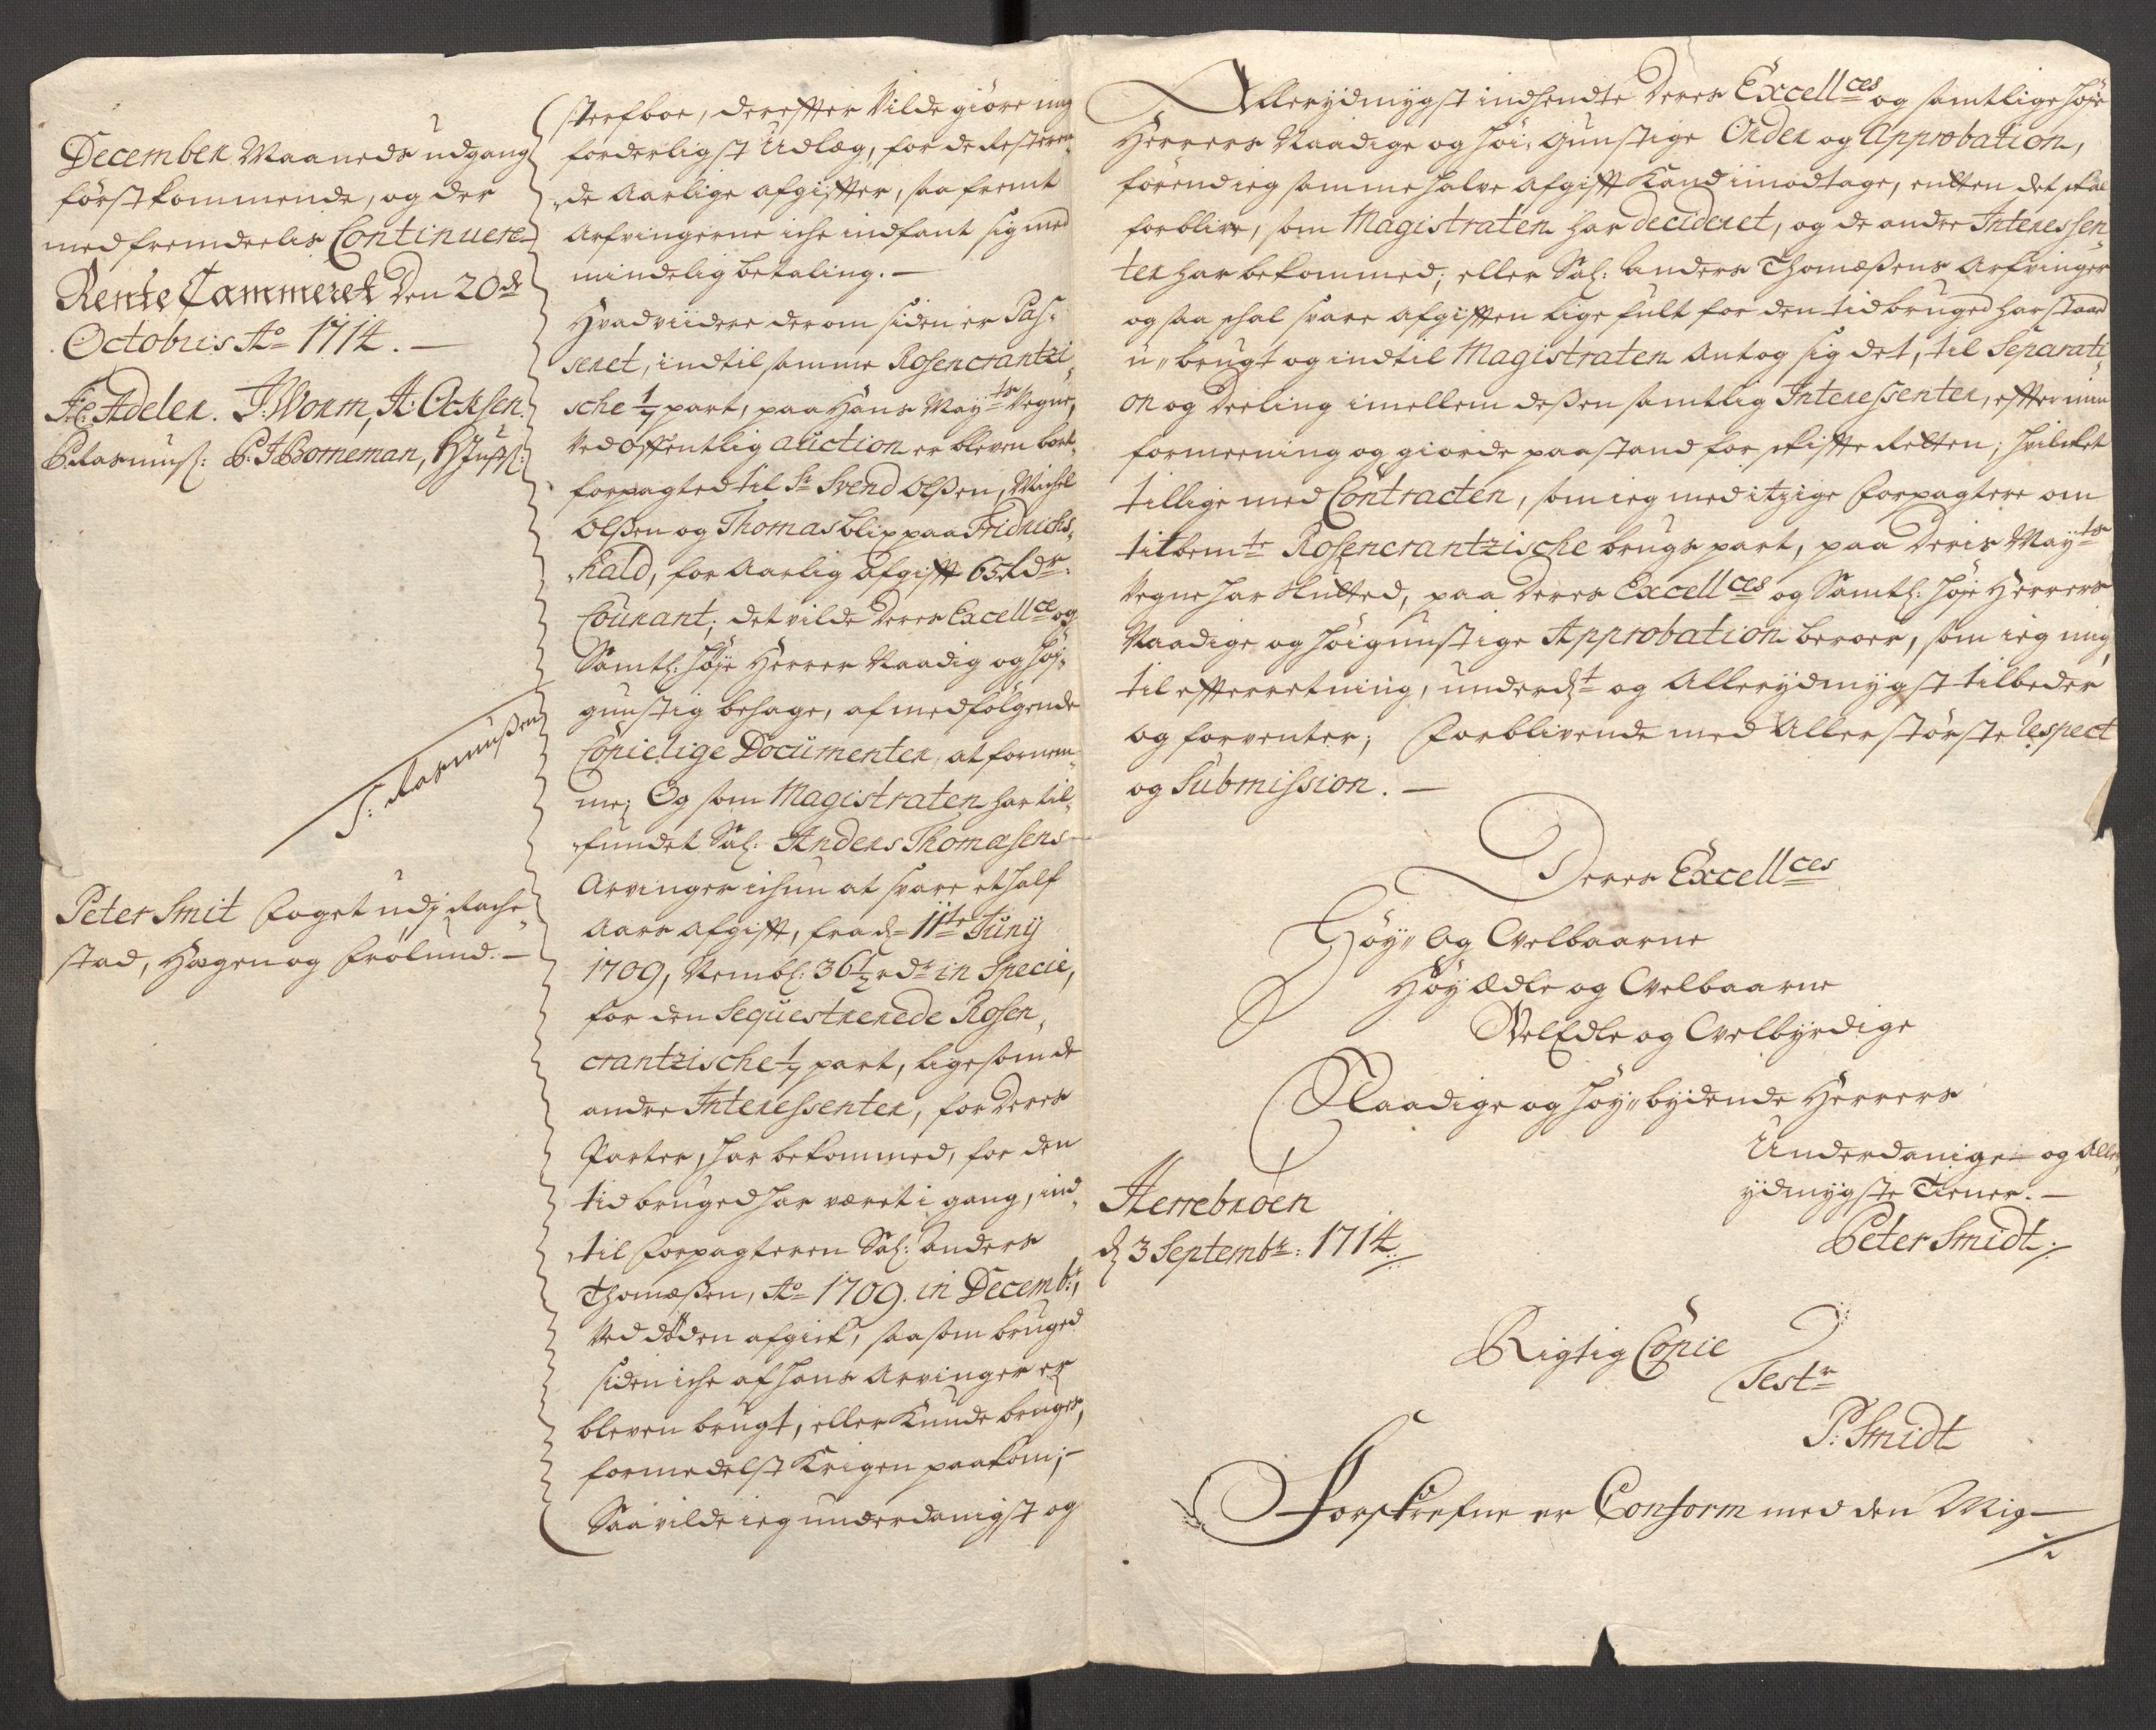 December Maaneds udgang
förstkommende, og der
med fremdeelis Continuere
Rente Cammeret den 20de
Octobris Ao 1714.
Fr: Adeler. J: Worm, A: Ocksen.
P: Rasmuss: P. J Borneman,
S: Rasmussen
Peter Smit Foget udj Rache,,
stad, Hægen og Frølund.
sterfboe, dereffter Vilde giöre mig
forderligst Udlæg, for de Resteren,,
de Aarlige afgiffter, saa fremt
Arfvingerne iche indfant sig med
mindelig betaling.
Hvad viidere derom siden er Pas,,
seret, indtil samme Rosencrantzi,,
sche 1/7 part, paa Hans Mayts Vegne,
Ved offentlig auction er bleven bort,,
forpagted til Sr Svend Olssen, Michel
Olssen og Thomas Blix paa Fridrichs,,
hald, for Aarlig Afgifft 65 Rdr:
Courant; det vilde Deres Excellce og
Samtl: Höje Herrer Naadig og Höj,,
gunstig behage, af medfölgende
Copielige Documenter at fornem,,
me; Og som Magistraten har til,,
fundet Sal: Anders Thomæsens
Arvinger ichun at svare et half
Aars Afgifft, fra d: 11te Junij
1709, Nembl: 36 1/2 rdr in Specie,
for den Sequestrerede Rosen,,
crantzische 1/7 part, ligesom de
andre Interessenter, for Deres
Parter, har bekommed, for den
tid bruged har været i gang, ind,,
til Forpagteren Sal: Anders
Thomæssen, Ao 1709. in Decembr:,
Ved döden afgick, saasom bruged
siden iche af hans Arvinger er
bleven brugt, eller Kunde bruges,
formedelst Krigen paakom;
Saa vilde ieg underdanigst og
Allerydmygst indsendte Deres Excellces og samtlige höje
Herrers Naadige og höi, gunstige Order og Approbation,
förend ieg samme halve Afgifft Kand imodtage, entten det skal
forblive, som Magistraten har decideret, og de andre Interessen,,
ter har bekommed; eller Sal: Anders Thomæssens Arfvinger
og saa schal svare afgifften lige fult for den tid bruged har staaed
u,, brugt og indtil Magistraten Antog sig det, til Separati,,
on og Deeling imellem dessen samtlig Interessenter, effter min
formeening og giorde paastand for skiffte Retten; hvilcket
tillige med Contracten, som ieg med itzige Forpagtere om
titbemte Rosencrantzische brugs part, paa Deris Mayts
Vegne har sluttet, paa Deres Excellces og Samtl: höje Herrers
Naadige og höigunstige Approbation beroer, som ieg mig,
til efterretning, underdt og Allerydmygst tilbeder
og forventer; Forblivende med Allerstörste Respect
og Submission.
Deres Excellces
Höy,, og Velbaarne
Höyædle og Velbaarne
VelEdle og Velbyrdige
Naadige og höy,, bydende Herrers
Underdanige og Aller,,
ydmygste Tiener.
Peter Smidt
Herrebröen
d 3 Septembr: 1714
Rigtig Copie
Testr
P: Smidt
Forskrefne er Conform med den Mig